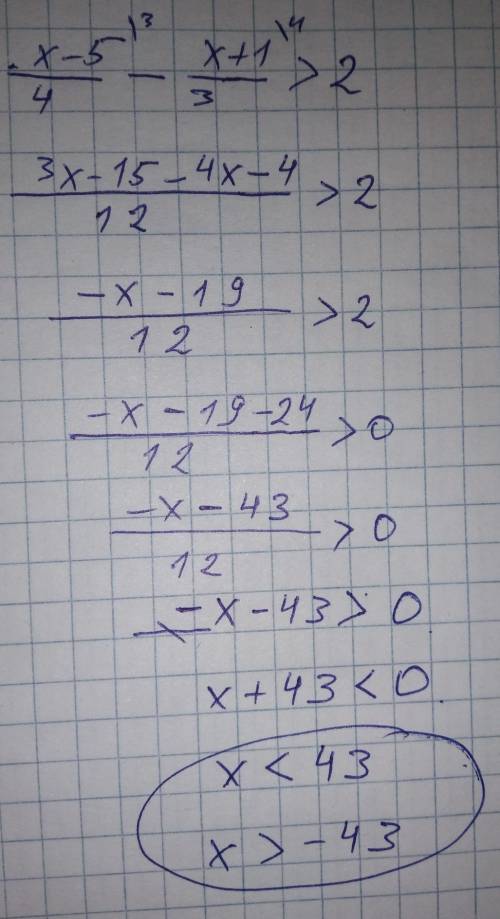 (x-5)/4 \3 - (x+1)/3 \4 > 2
(3x-15-4x-4)/12 > 2
(-x-19)/12 > 2
(-x-19-24)/12 > 0
(-x-43)/12 > 0
-x-43 > 0
x+43 < 0
x < 43
x > -43